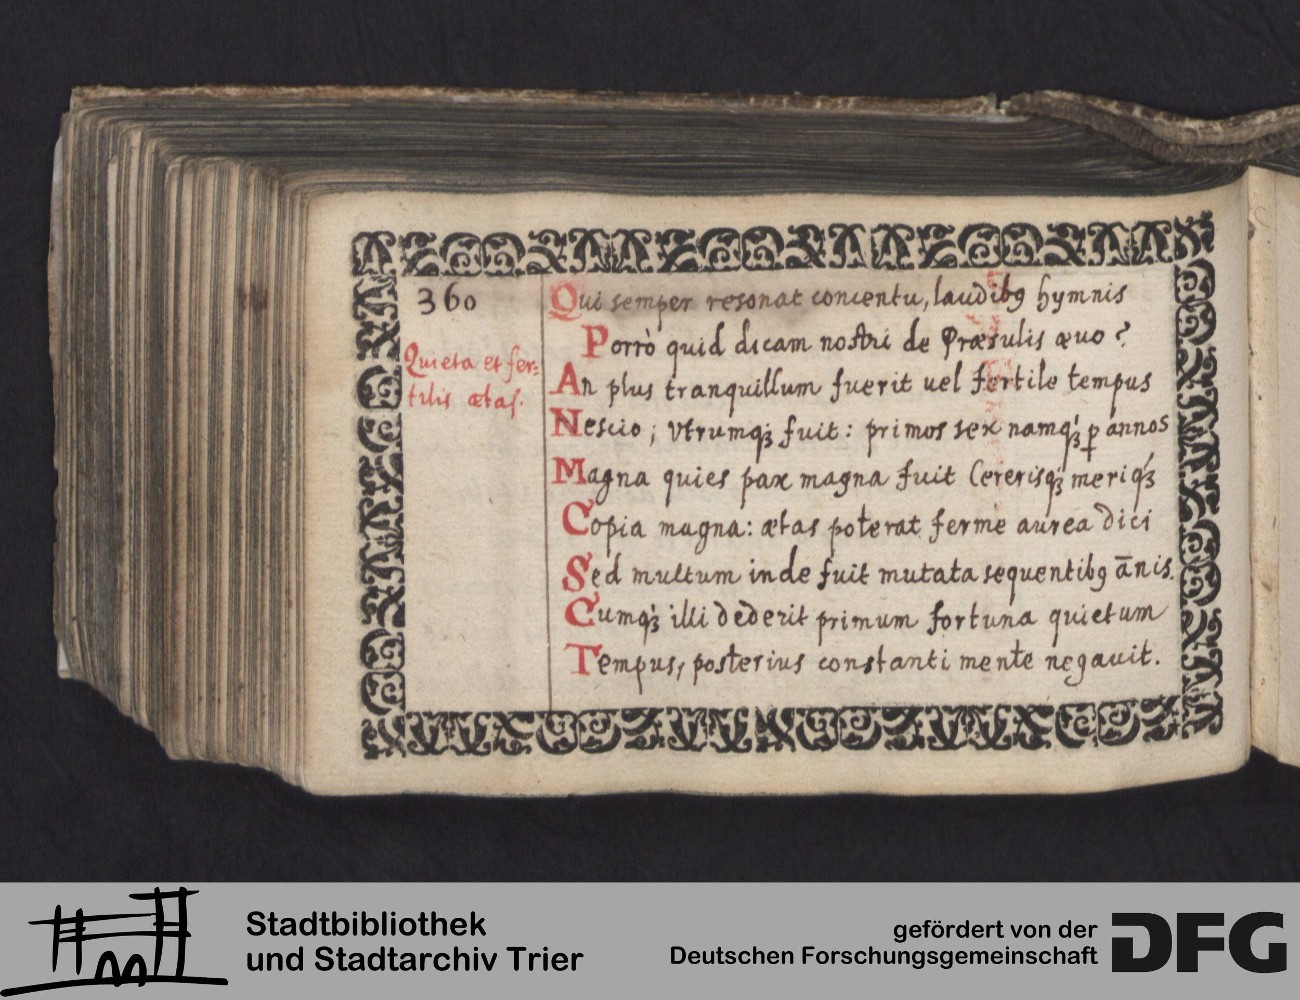 360
Qui semper resonat concentu, laudibꝯ hymnis
Porrò quid dicam nostri de Præsulis æuo?
Quieta et fer=
tilis ætas.
An plus tranquillum fuerit uel fertile tempus
Nescio; vtrumqꝫ fuit: primos sex namqꝫ ꝑ annos
Magna quies pax magna fuit Cererisqꝫ meriqꝫ
Copia magna: ætas poterat ferme aurea dici
Sed multum inde fuit mutata sequentibꝯ ānis.
Cumqꝫ illi dederit primum fortuna quietum
Tempus, posterius constanti mente negauit.
Stadtbibliothek
und Stadtarchiv Trier
gefördert von der
Deutschen Forschungsgemeinschaft
DFG